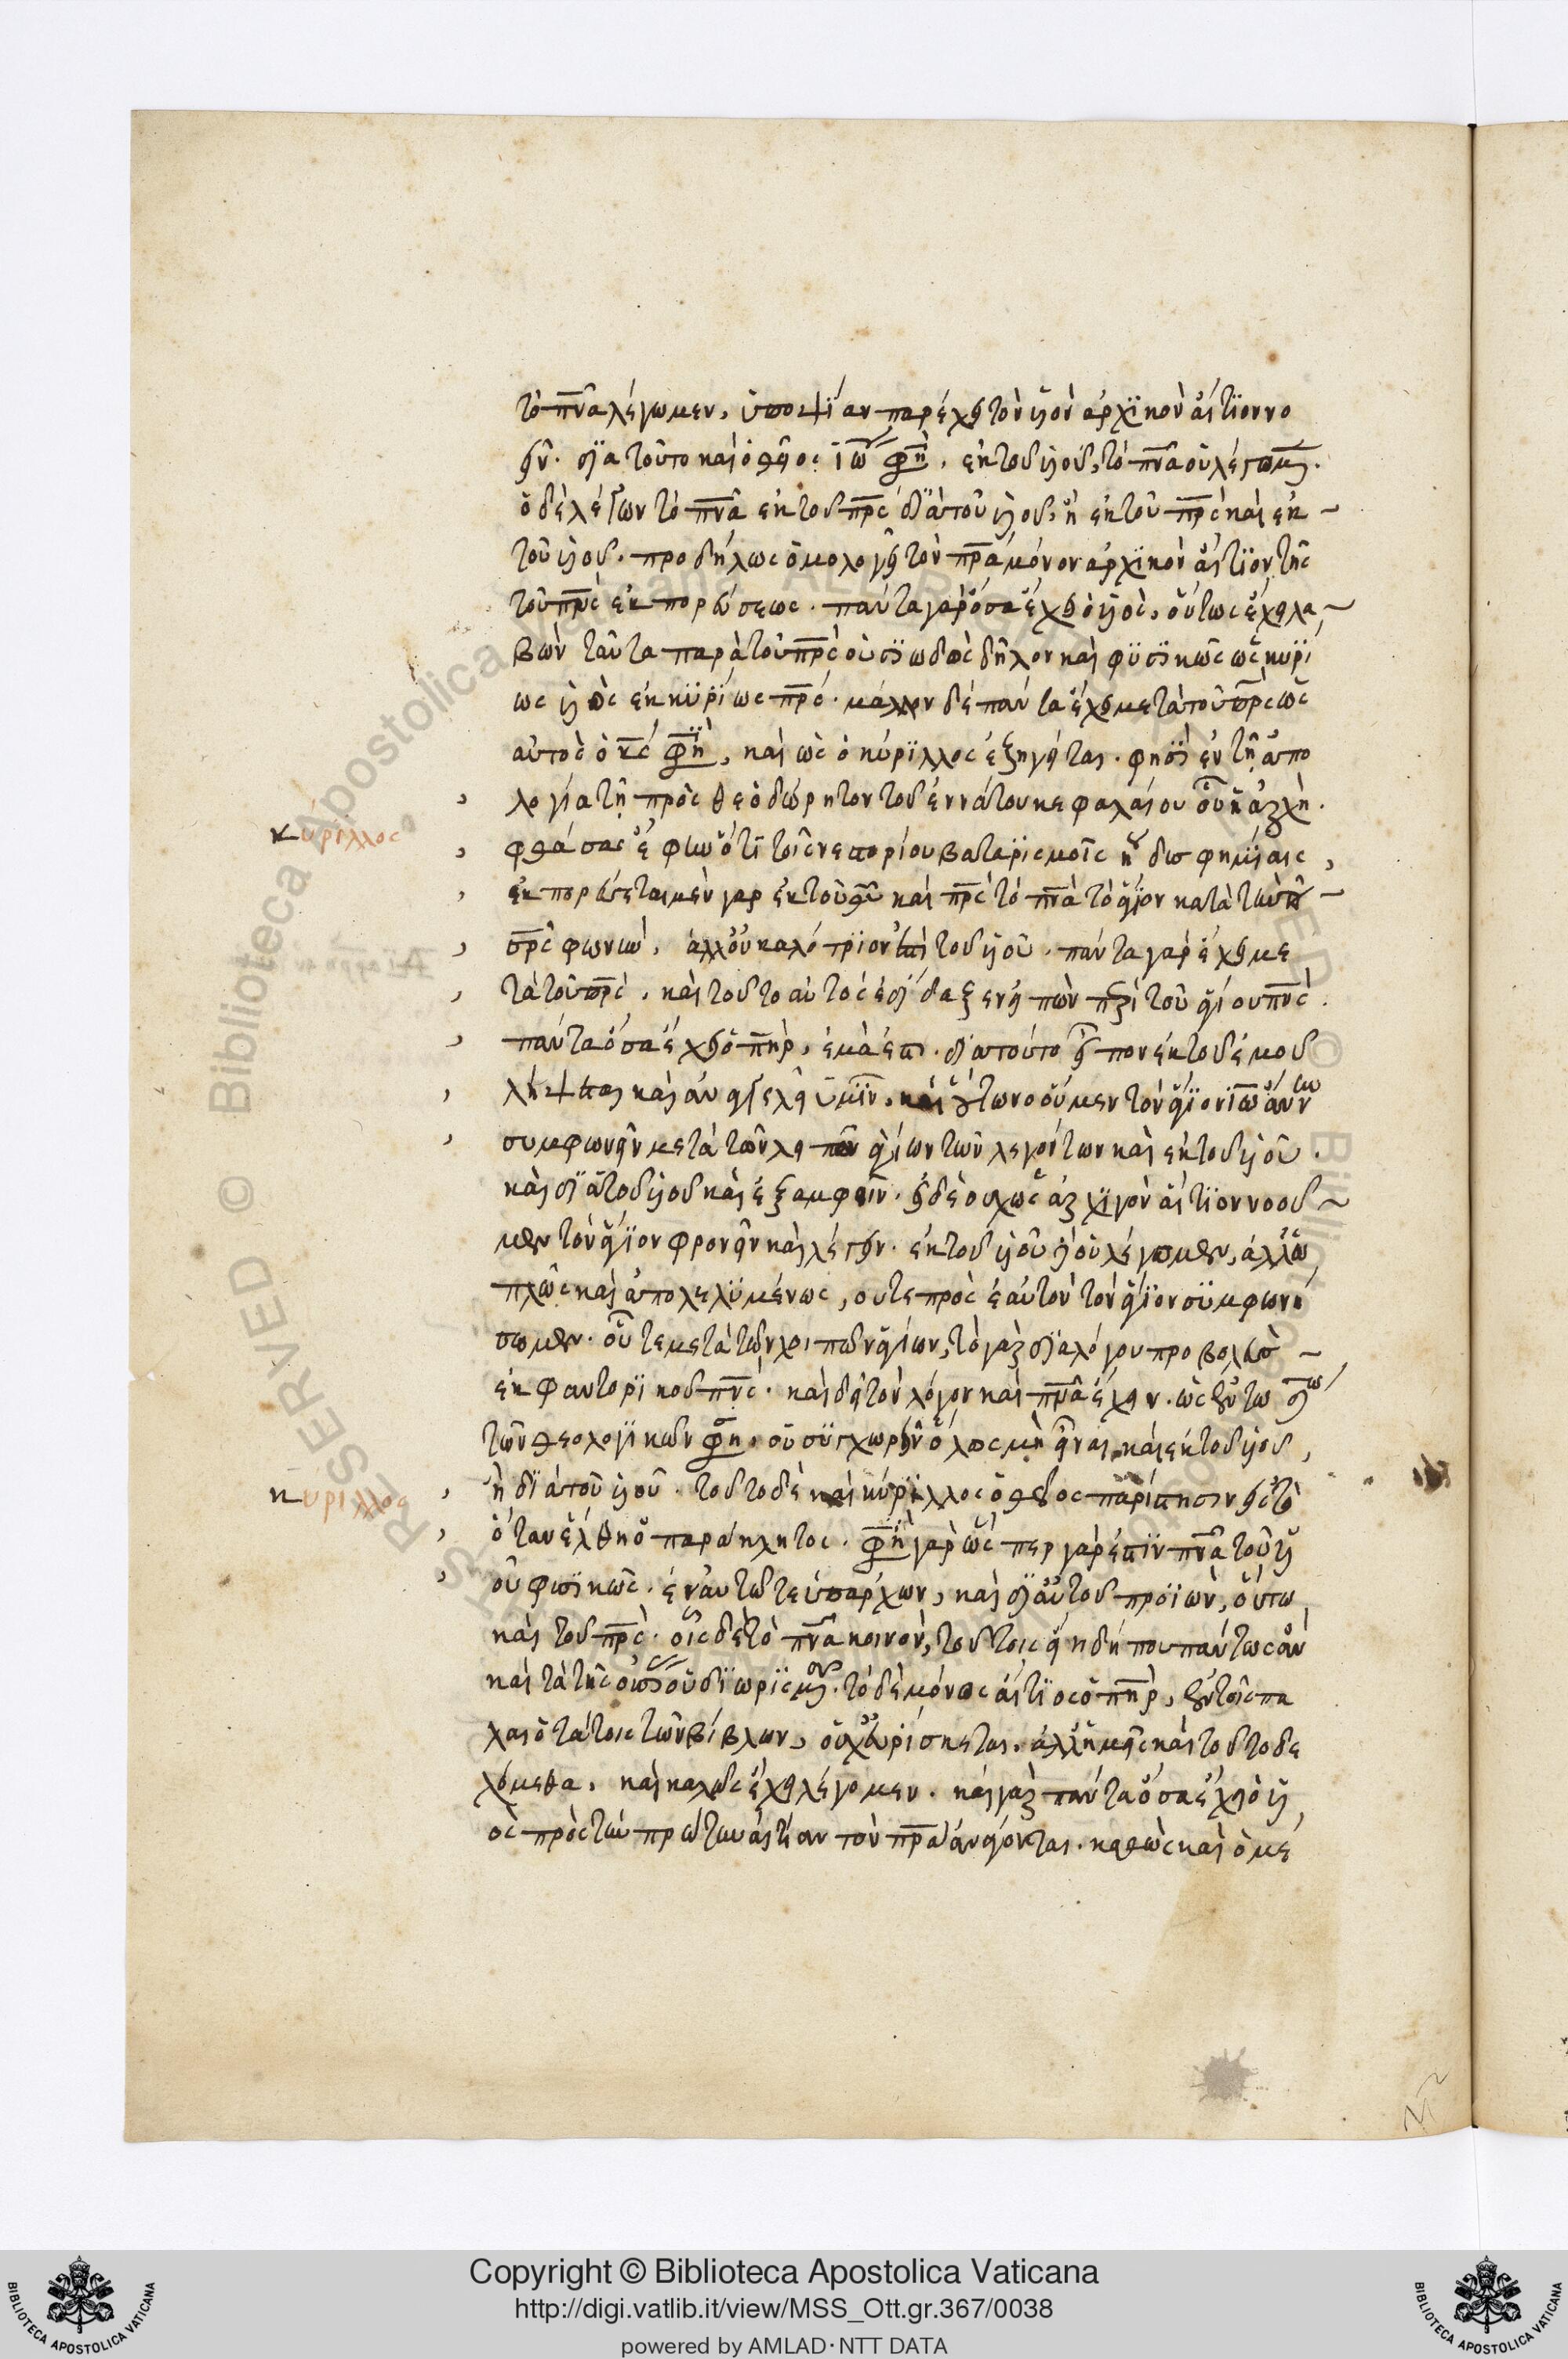 τὸ πνᾶ λέγωμεν, ὑποψίαν παρέχει τὸν υἱὸν ἀρχικὸν αἴτιον νο
εῖν. διατοῦτο καὶ ὁ θεῖος ἰω φησὶ, ἐκ τοῦ υἱοῦ, τὸ πνᾶ οὐ λέγομεν.
ὁ δὲ λέγων τὸ πνᾶ ἐκ τοῦ πρς διὰ τοῦ υἱοῦ, ἢ ἐκ τοῦ πρς καὶ ἐκ
τοῦ υἱοῦ. προδήλως ὁμολογεῖ τὸν πρα μόνον ἀρχικὸν αἴτιον τῆς
τοῦ πνς ἐκπορεύσεως. πάντα γὰρ ὅσα ἔχει ὁ υἱὸς, οὕτως ἔχει λα
βὼν ταῦτα παρὰ τοῦ πρς οὐσιωδῶς δῆλον καὶ φυσικῶς ὡς κυρί
ως υἱὸς ἐκ κυρίως πρς. μᾶλλον δὲ πάντα ἔχει μετὰ τοῦ πρς ὡς
αὐτὸς ὁ κς φησὶ, καὶ ὡς ὁ κύριλλος ἐξηγεῖται. φησὶ ἐν τῇ ἀπο
λογία τῇ πρὸς θεοδώρητον τοῦ ἐννάτου κεφαλαίου οὗ ἡ ἀρχὴ.
κυριλλος
φθάσας ἔφην ὅτι τοῖς νεστορίου βαταρισμοῖς καὶ δυσφημίαις,
ἐκπορεύεται μὲν γὰρ ἐκ τοῦ θῦ καὶ πρς τὸ πνᾶ τὸ ἅγιον κατὰ τὴν τοῦ
σρς φωνὴν, ἀλλ' οὐκ ἀλότριον ἐστὶ τοῦ υἱοῦ. πάντα γὰρ ἔχει με
τὰ τοῦ πρς. καὶ τοῦτο αὐτὸς ἐδίδαξεν εἰπὼν περὶ τοῦ ἁγίου πνς.
πάντα ὅσα ἔχει ὁ πηρ, ἐμά ἐστι. διατοῦτο εἶπον ἐκ τοῦ ἐμοῦ
λήψεται καὶ ἀναγγελεῖ ὑμῖν. καὶ οὕτω νοοῦμεν τὸν ἅγιον ἰω ἄνω
συμφωνεῖν μετὰ τῶν λοιπῶν ἁγίων τῶν λεγόντων καὶ ἐκ τοῦ υἱοῦ.
καὶ διὰ τοῦ υἱοῦ καὶ ἐξ ἀμφοῖν. εἰ δὲ οὐχ ὡς ἀρχιγὸν αἴτιον νοοῦ
μεν τὸν ἅγιον φρονεῖν καὶ λέγειν. ἐκ τοῦ υἱοῦ οὐ λέγομεν, ἀλλ' ἁ
πλῶς καὶ ἀπολελυμένως, οὔτε πρὸς ἑαυτὸν τὸν ἅγιον συμφωνή
σωμεν. οὔτε μετὰ τῶν λοιπῶν ἁγίων, τὸ γὰρ διαλόγου προβολεὺς
ἐκφαντορικοῦ πνς. καὶ δεῖ τὸν λόγον καὶ πνᾶ ἔχειν. ὡς ἐν τῷ
τῶν θεολογικῶν φησὶ, οὐ συγχωρεῖν ὅλως μὴ εἶναι καὶ ἐκ τοῦ υἱοῦ,
κυριλλος
ἢ διὰ τοῦ υἱοῦ. τοῦτο δὲ καὶ κύριλλος ὁ θεῖος παρίστησιν εἰς τὸ
ὅταν ἔλθη ὁ παράκλητος. φησὶ γὰρ ὥσπερ γὰρ ἐστὶν πνᾶ τοῦ υἱ
οῦ φυσικῶς. ἐν αὐτῷ τε ὑπάρχων, καὶ δι' αὐτοῦ προϊὼν, οὕτω
καὶ τοῦ πρς. οἷς δὲ τὸ πνᾶ κοινὸν, τούτοις εἴη δή που πάντως ἂν
καὶ τὰ τῆς οὐσίας οὐ διωρισμένα. τὸ δὲ μόνος αἴτιος ὁ πηρ, ἐν τοῖς πα
λαιοτάτοις τῶν βίβλων, οὐχ εὑρίσκεται. ἀλλ' ἡμεῖς καὶ τοῦτο δε
χόμεθα. καὶ καλῶς ἔχει λέγομεν. καὶ γὰρ πάντα ὅσα ἔχει ὁ υἱ
ὸς πρὸς τὴν πρώτην αἰτίαν τὸν πρα ἀνάγονται. καθὼς καὶ ὁ μέ
Copyright © Biblioteca Apostolica Vaticana
http://digi.vatlib.it/view/MSS_Ott.gr.367/0038
powered by AMLAD·NTT DATA